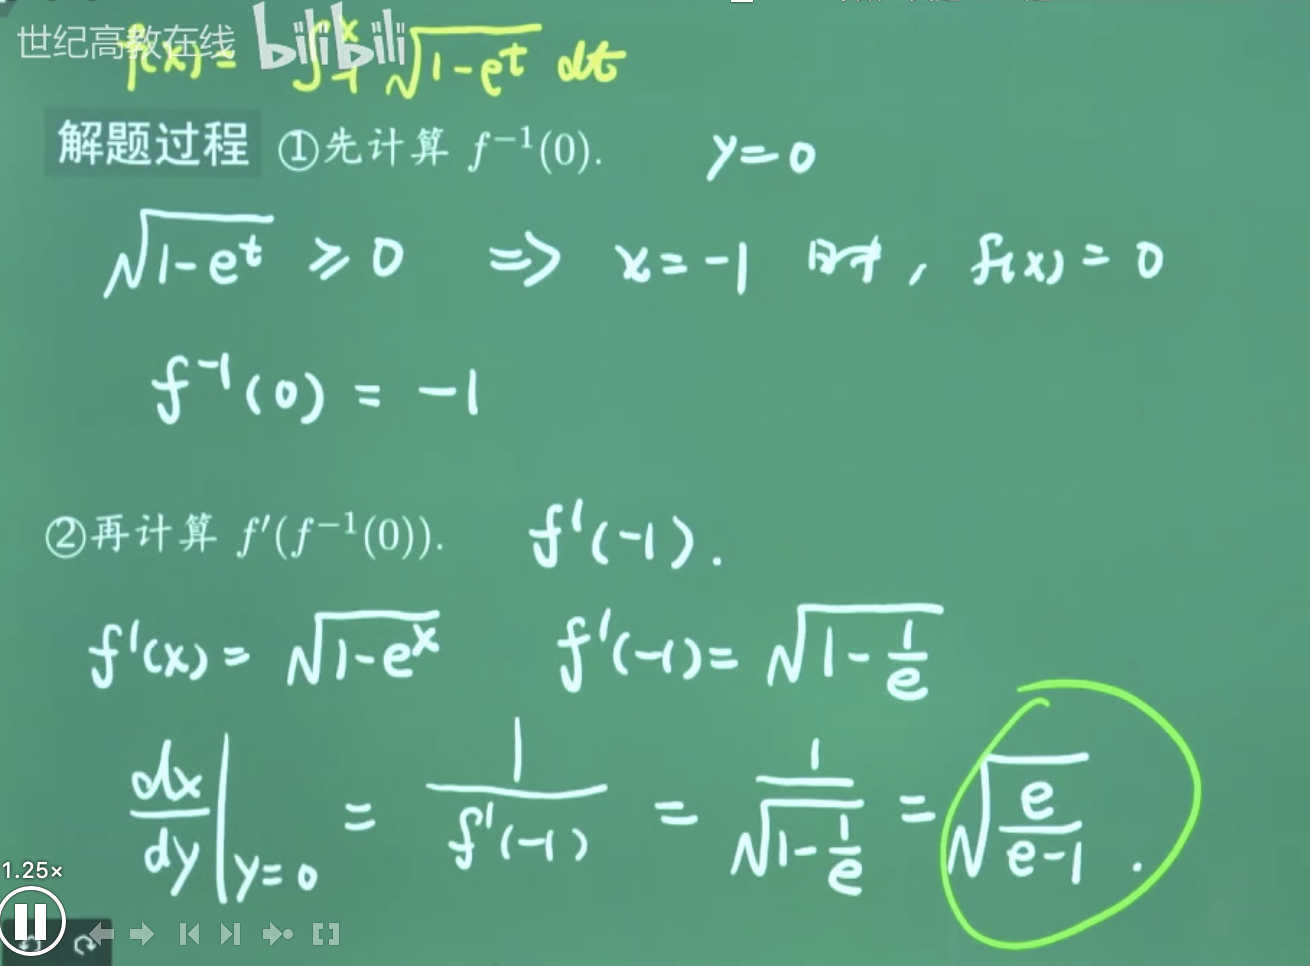 世纪高教在线 bilibili
f(x) = ∫₋₁ˣ √(1-eᵗ) dt
解题过程 ①先计算 f⁻¹(0). y=0
√(1-eᵗ) ⩾ 0 ⇒ x=-1 时, f(x)=0
f⁻¹(0) = -1
②再计算 f′(f⁻¹(0)). f′(-1).
f′(x) = √(1-eˣ) f′(-1) = √(1-1/e)
dx/dy|y=0 = 1/f′(-1) = 1/√(1-1/e) = √(e/(e-1)).
1.25×